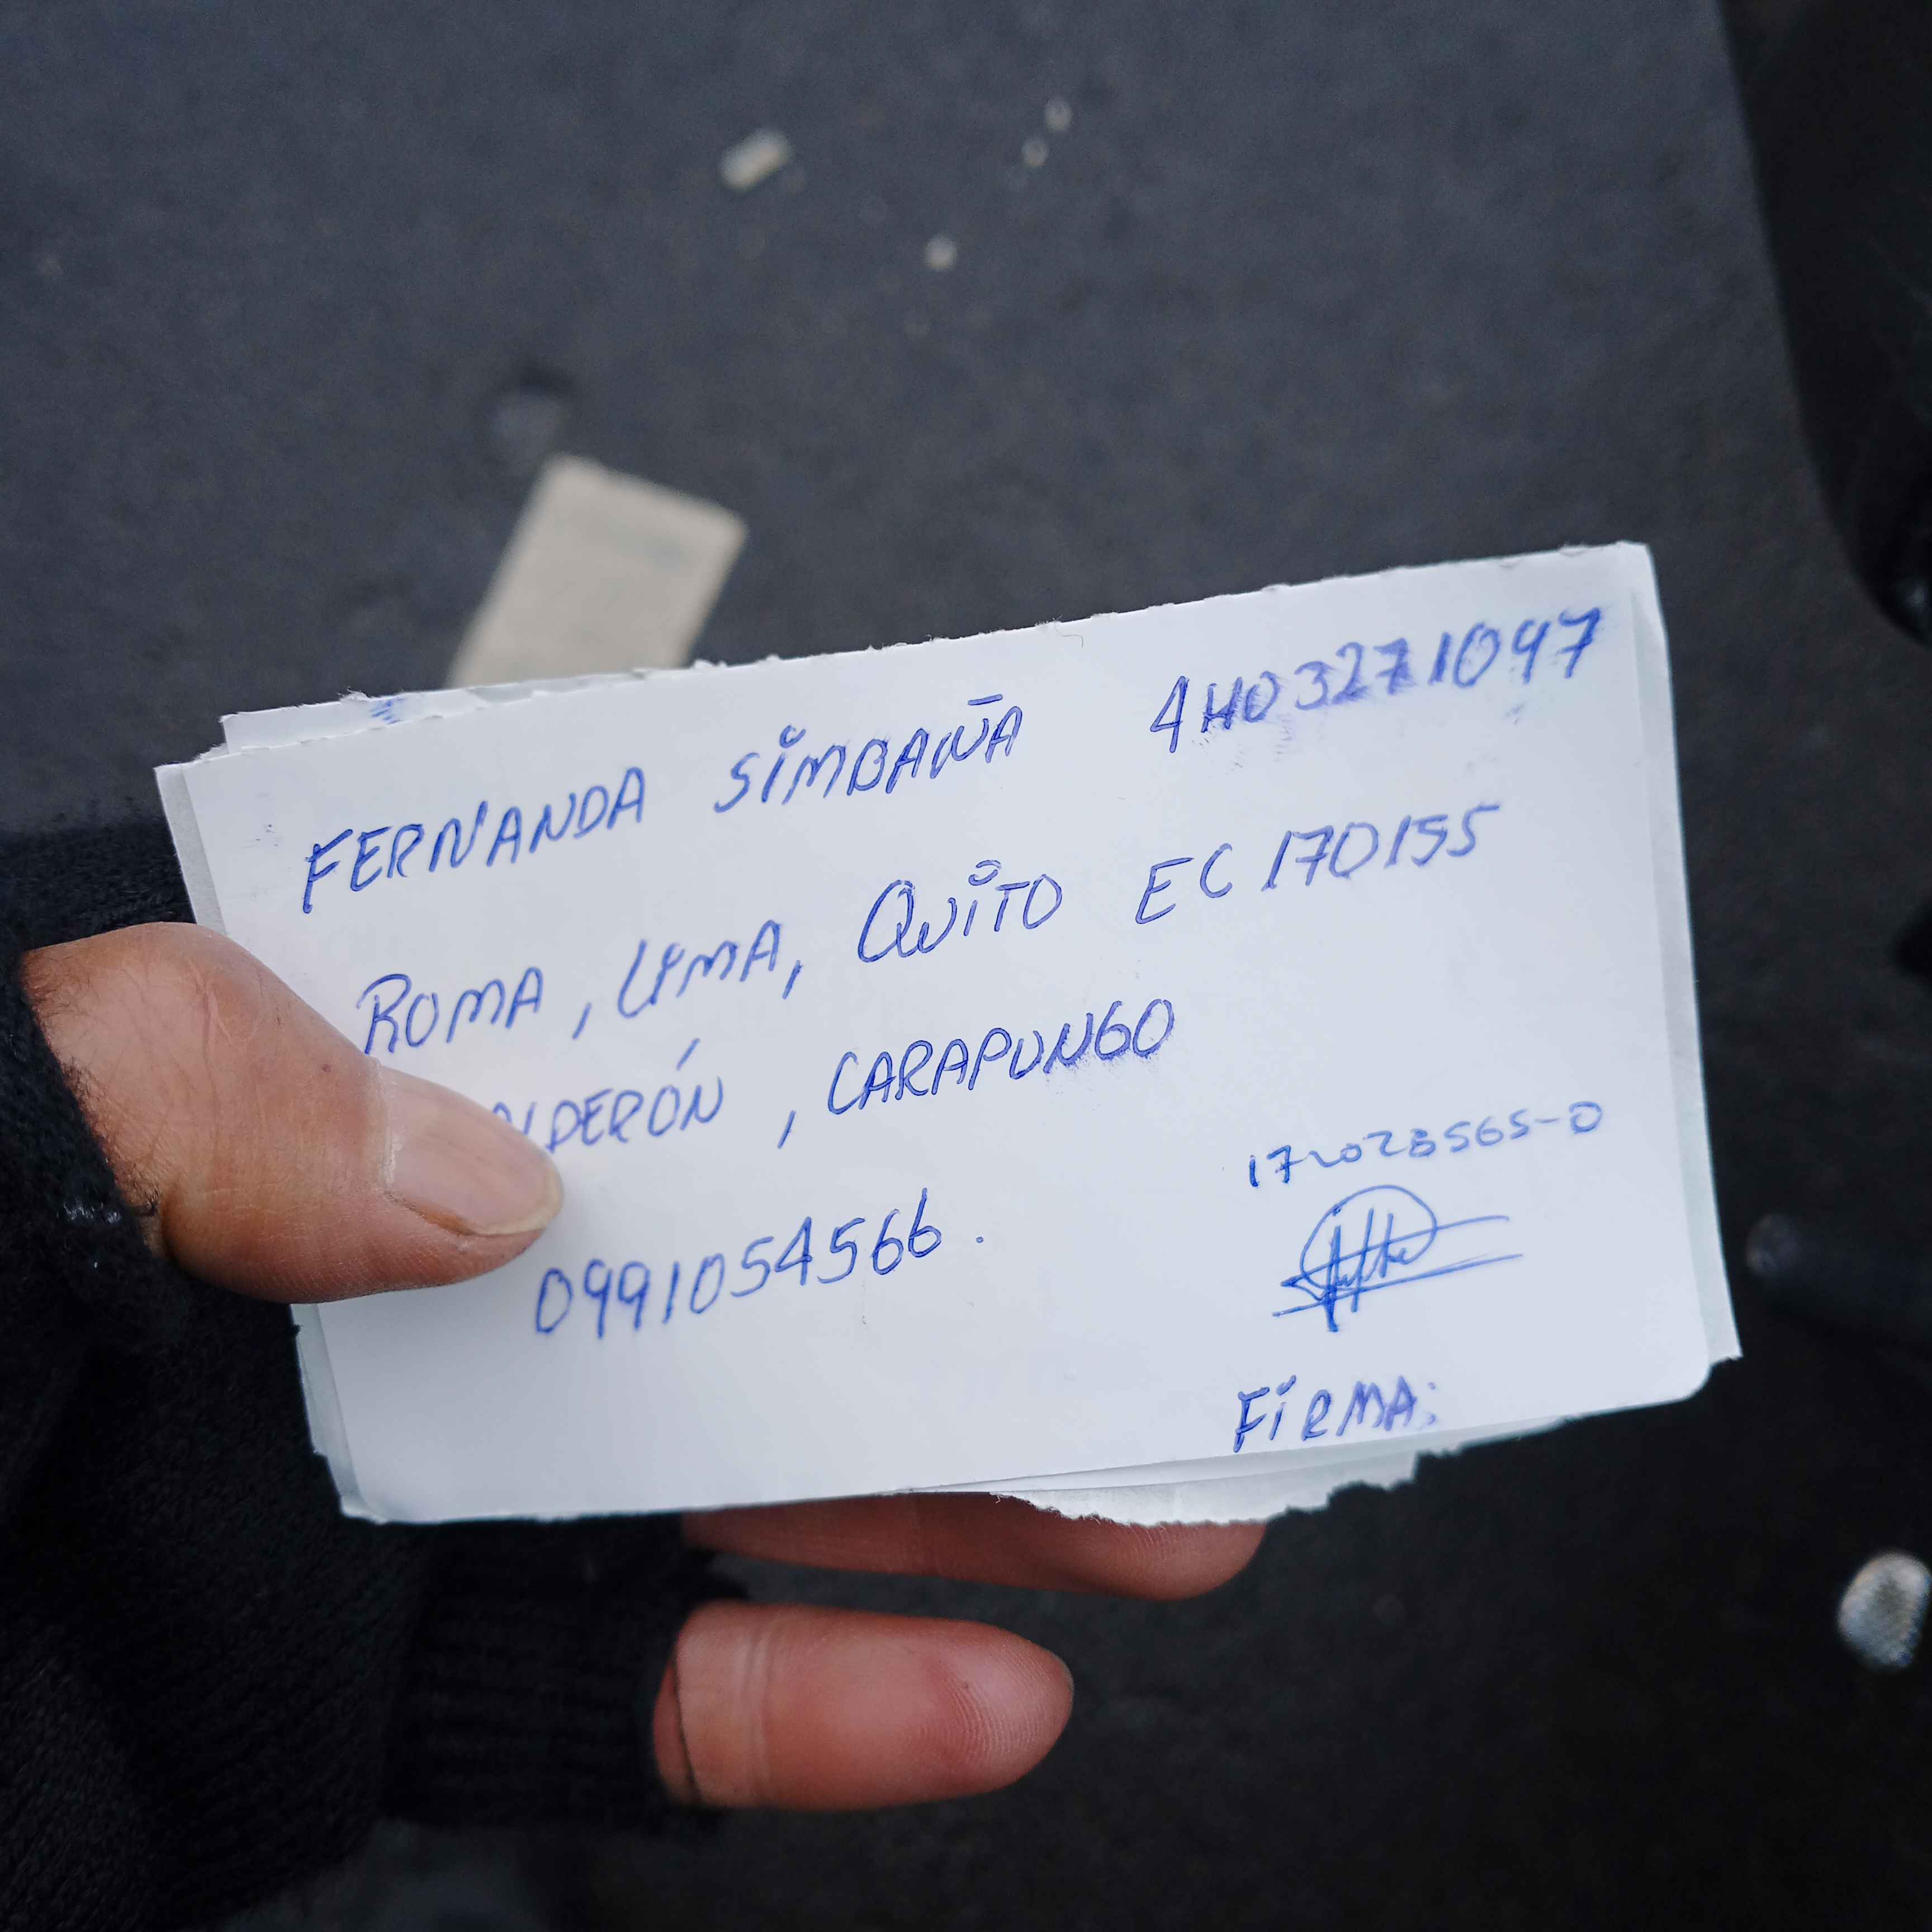 FERNANDA SIMBAÑA 4H03271097
ROMA, LIMA, QUITO EC170155
ALDERÓN, CARAPUNGO
0991054566.
FIRMA: